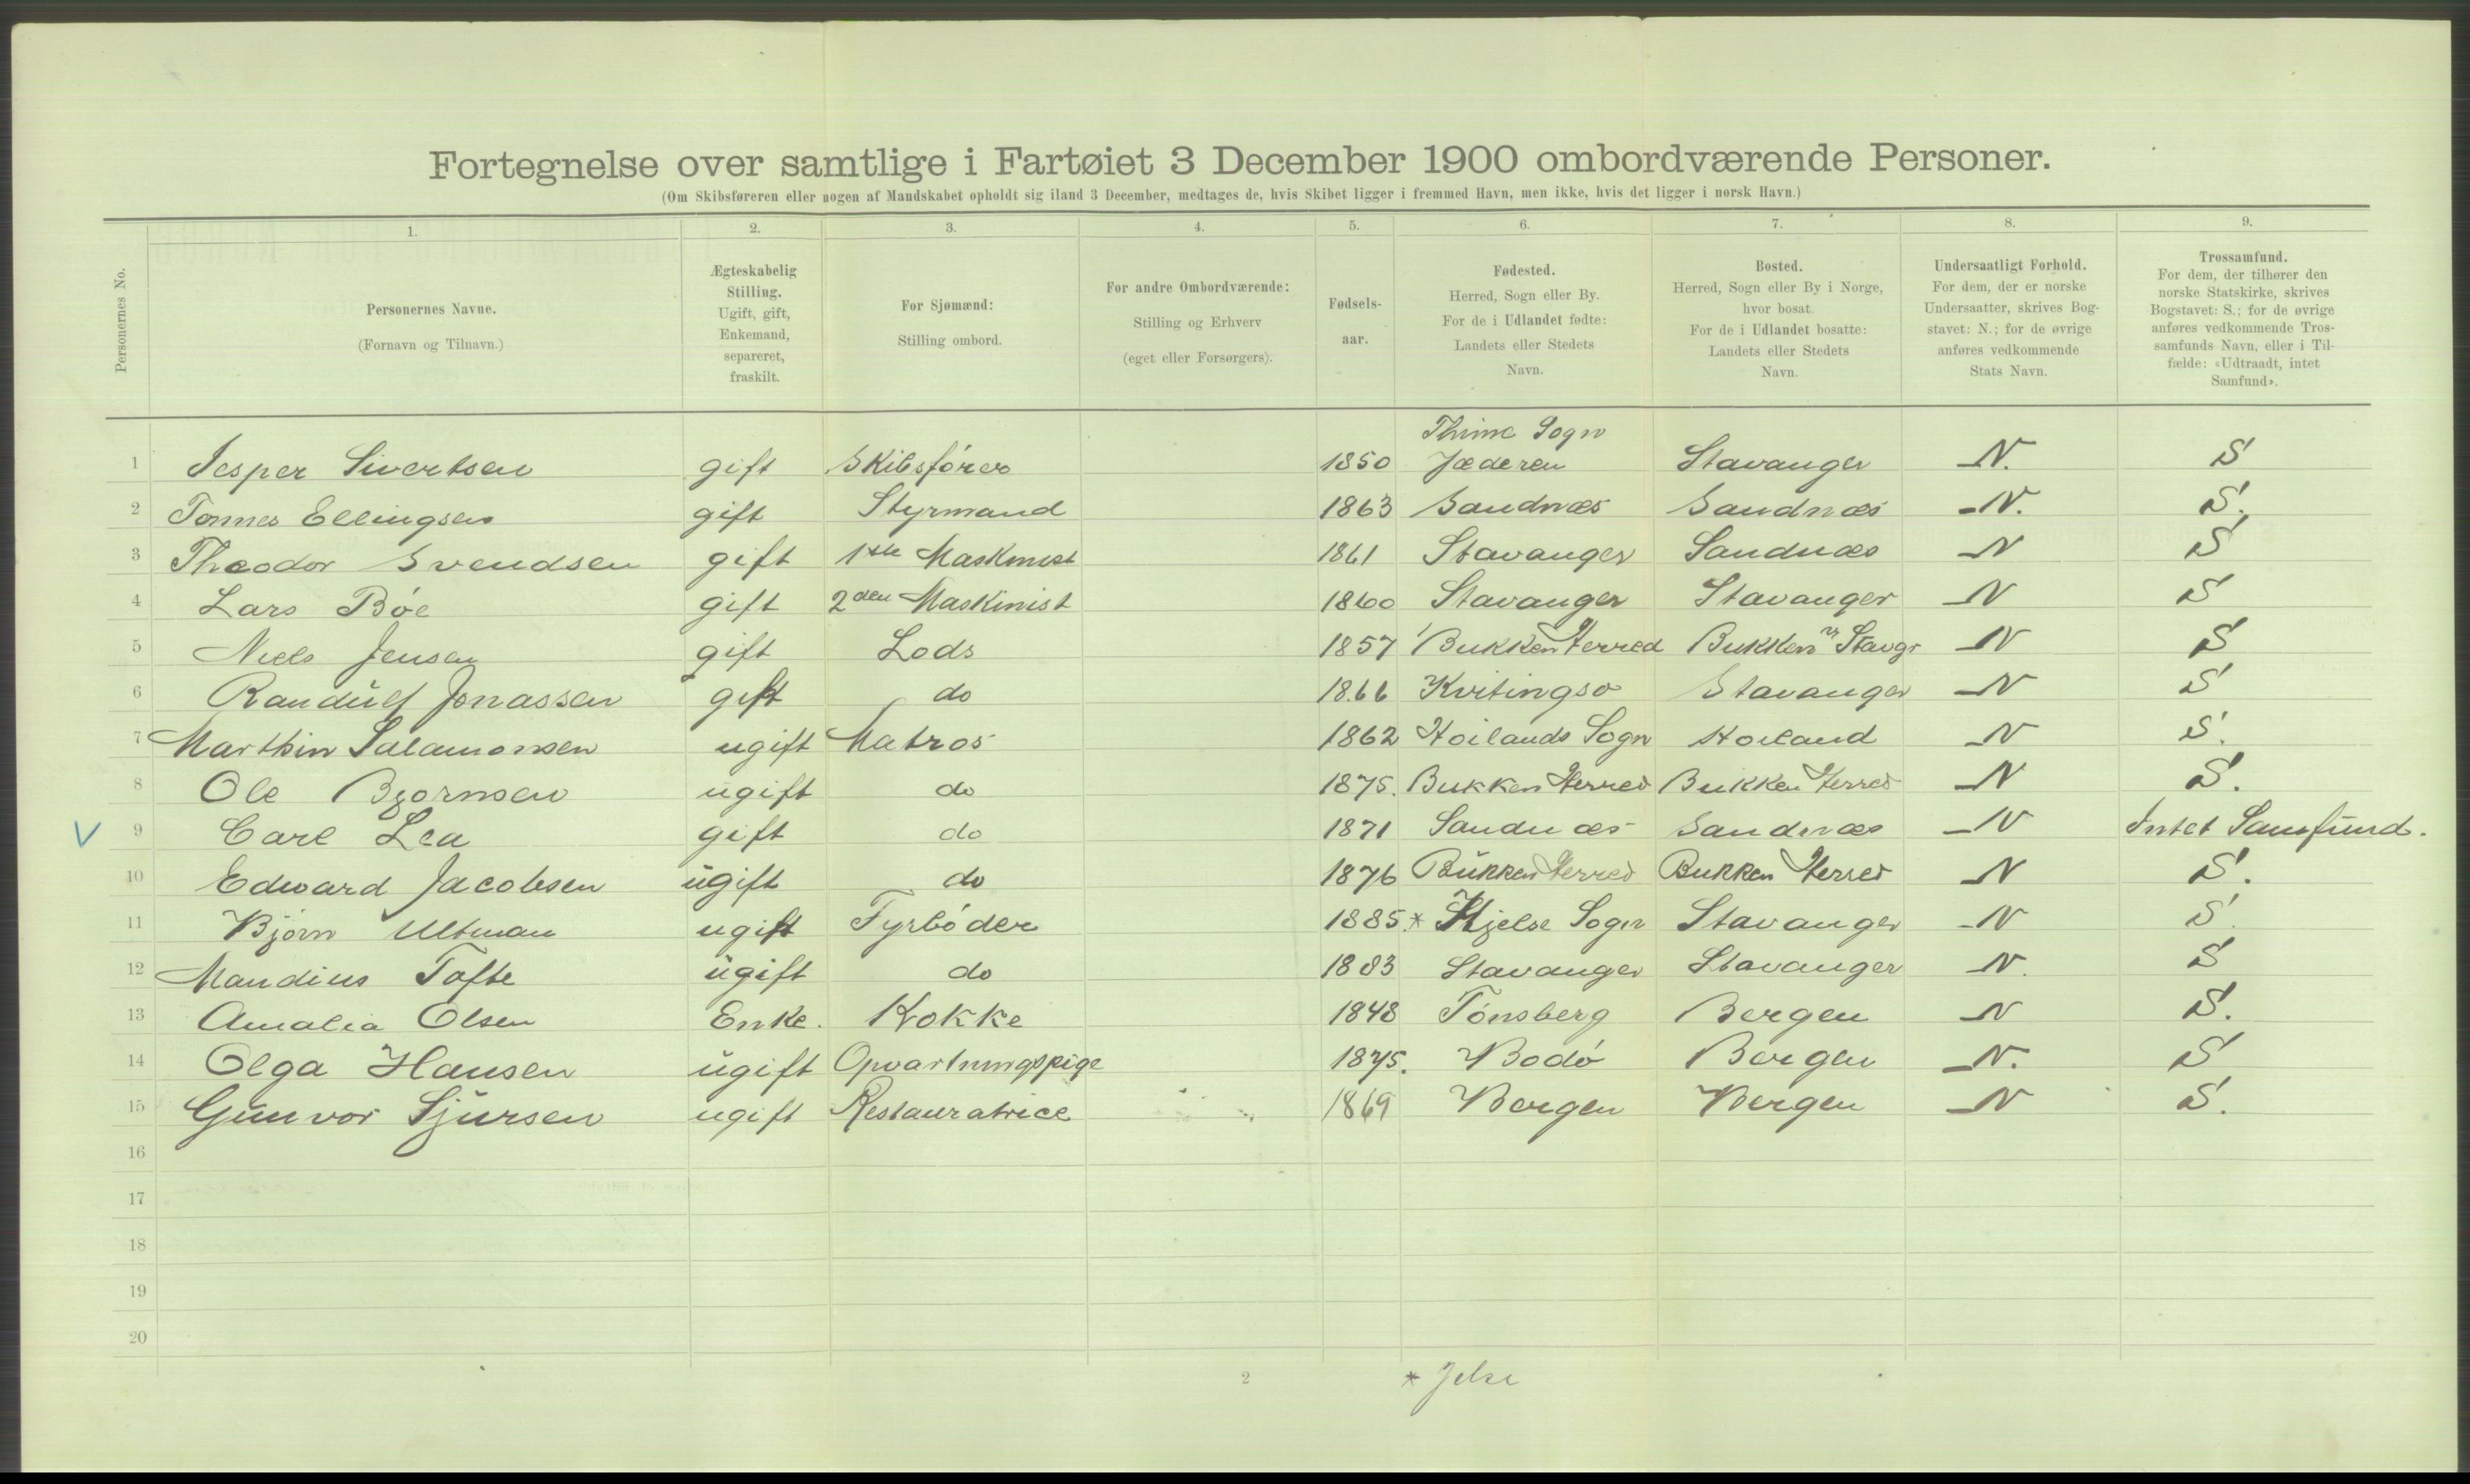 Fortegnelse over samtlige i Fartøiet 3 December 1900 ombordværende Personer.
(Om Skibsføreren eller nogen af Mandskabet opholdt sig iland 3 December, medtages de, hvis Skibet ligger i fremmed Havn, men ikke, hvis det ligger i norsk Havn.)
1. 2. 3. 4. 5. 6. 7. 8. 9.
Personernes No.
Personernes Navne.
(Fornavn og Tilnavn.)
Ægteskabelig
Stilling.
Ugift, gift,
Enkemand,
separeret,
fraskilt.
For Sjømænd:
Stilling ombord.
For andre Ombordværende:
Stilling og Erhverv
(eget eller Forsørgers).
Fødsels-
aar.
Fødested.
Herred, Sogn eller By.
For de i Udlandet fødte:
Landets eller Stedets
Navn.
Bosted.
Herred, Sogn eller By i Norge,
hvor bosat.
For de i Udlandet bosatte:
Landets eller Stedets
Navn.
Undersaatligt Forhold.
For dem, der er norske
Undersaatter, skrives Bog-
stavet: N.; for de øvrige
anføres vedkommende
Stats Navn.
Trossamfund.
For dem, der tilhører den
norske Statskirke, skrives
Bogstavet: S.; for de øvrige
anføres vedkommende Tros-
samfunds Navn, eller i Til-
fælde: «Udtraadt, intet
Samfund».
Thime Sogn
1 Jesper Sivertsen gift Skibsfórer 1850 Jæderen Stavanger N. S
2 Tonnes Ellingsen gift Styrmand 1863 Sandnæs Sandnæs N. S.
3 Theodor Svendsen gift 1ste Maskinist 1861 Stavanger Sandnæs N S
4 Lars Bóe gift 2den Maskinist 1860 Stavanger Stavanger N S
5 Niels Jensen gift Lods 1857 Bukken Herred Bukken Stavgr N S
6 Randulf Jonassen gift do 1866 Kvitingso Stavanger N S
7 Marthin Salamonsen ugift Matros 1862 Hoilands Sogn Hoiland N S.
8 Ole Bjornsen ugift do 1875. Bukken Herred Bukken Herred N S.
V 9 Carl Lea gift do 1871 Sandnæs Sandnæs N Intet Samfund.
10 Edward Jacobsen ugift do 1876 Bukken Herred Bukken Herred N S.
11 Bjórn Ultman ugift Fyrbóder 1885.* Hjelse Sogn Stavanger N S.
12 Mandius Tofte ugift do 1883 Stavanger Stavanger N. S
13 Amalia Olsen Enke. Kokke 1848 Tónsberg Bergen N S.
14 Olga Hansen ugift Opvartningspige 1875. Bodó Bergen N. S
15 Gunvor Sjursen ugift Restauratrice 1869 Bergen Bergen N S.
16
17
18
19
20
2 * Jelse